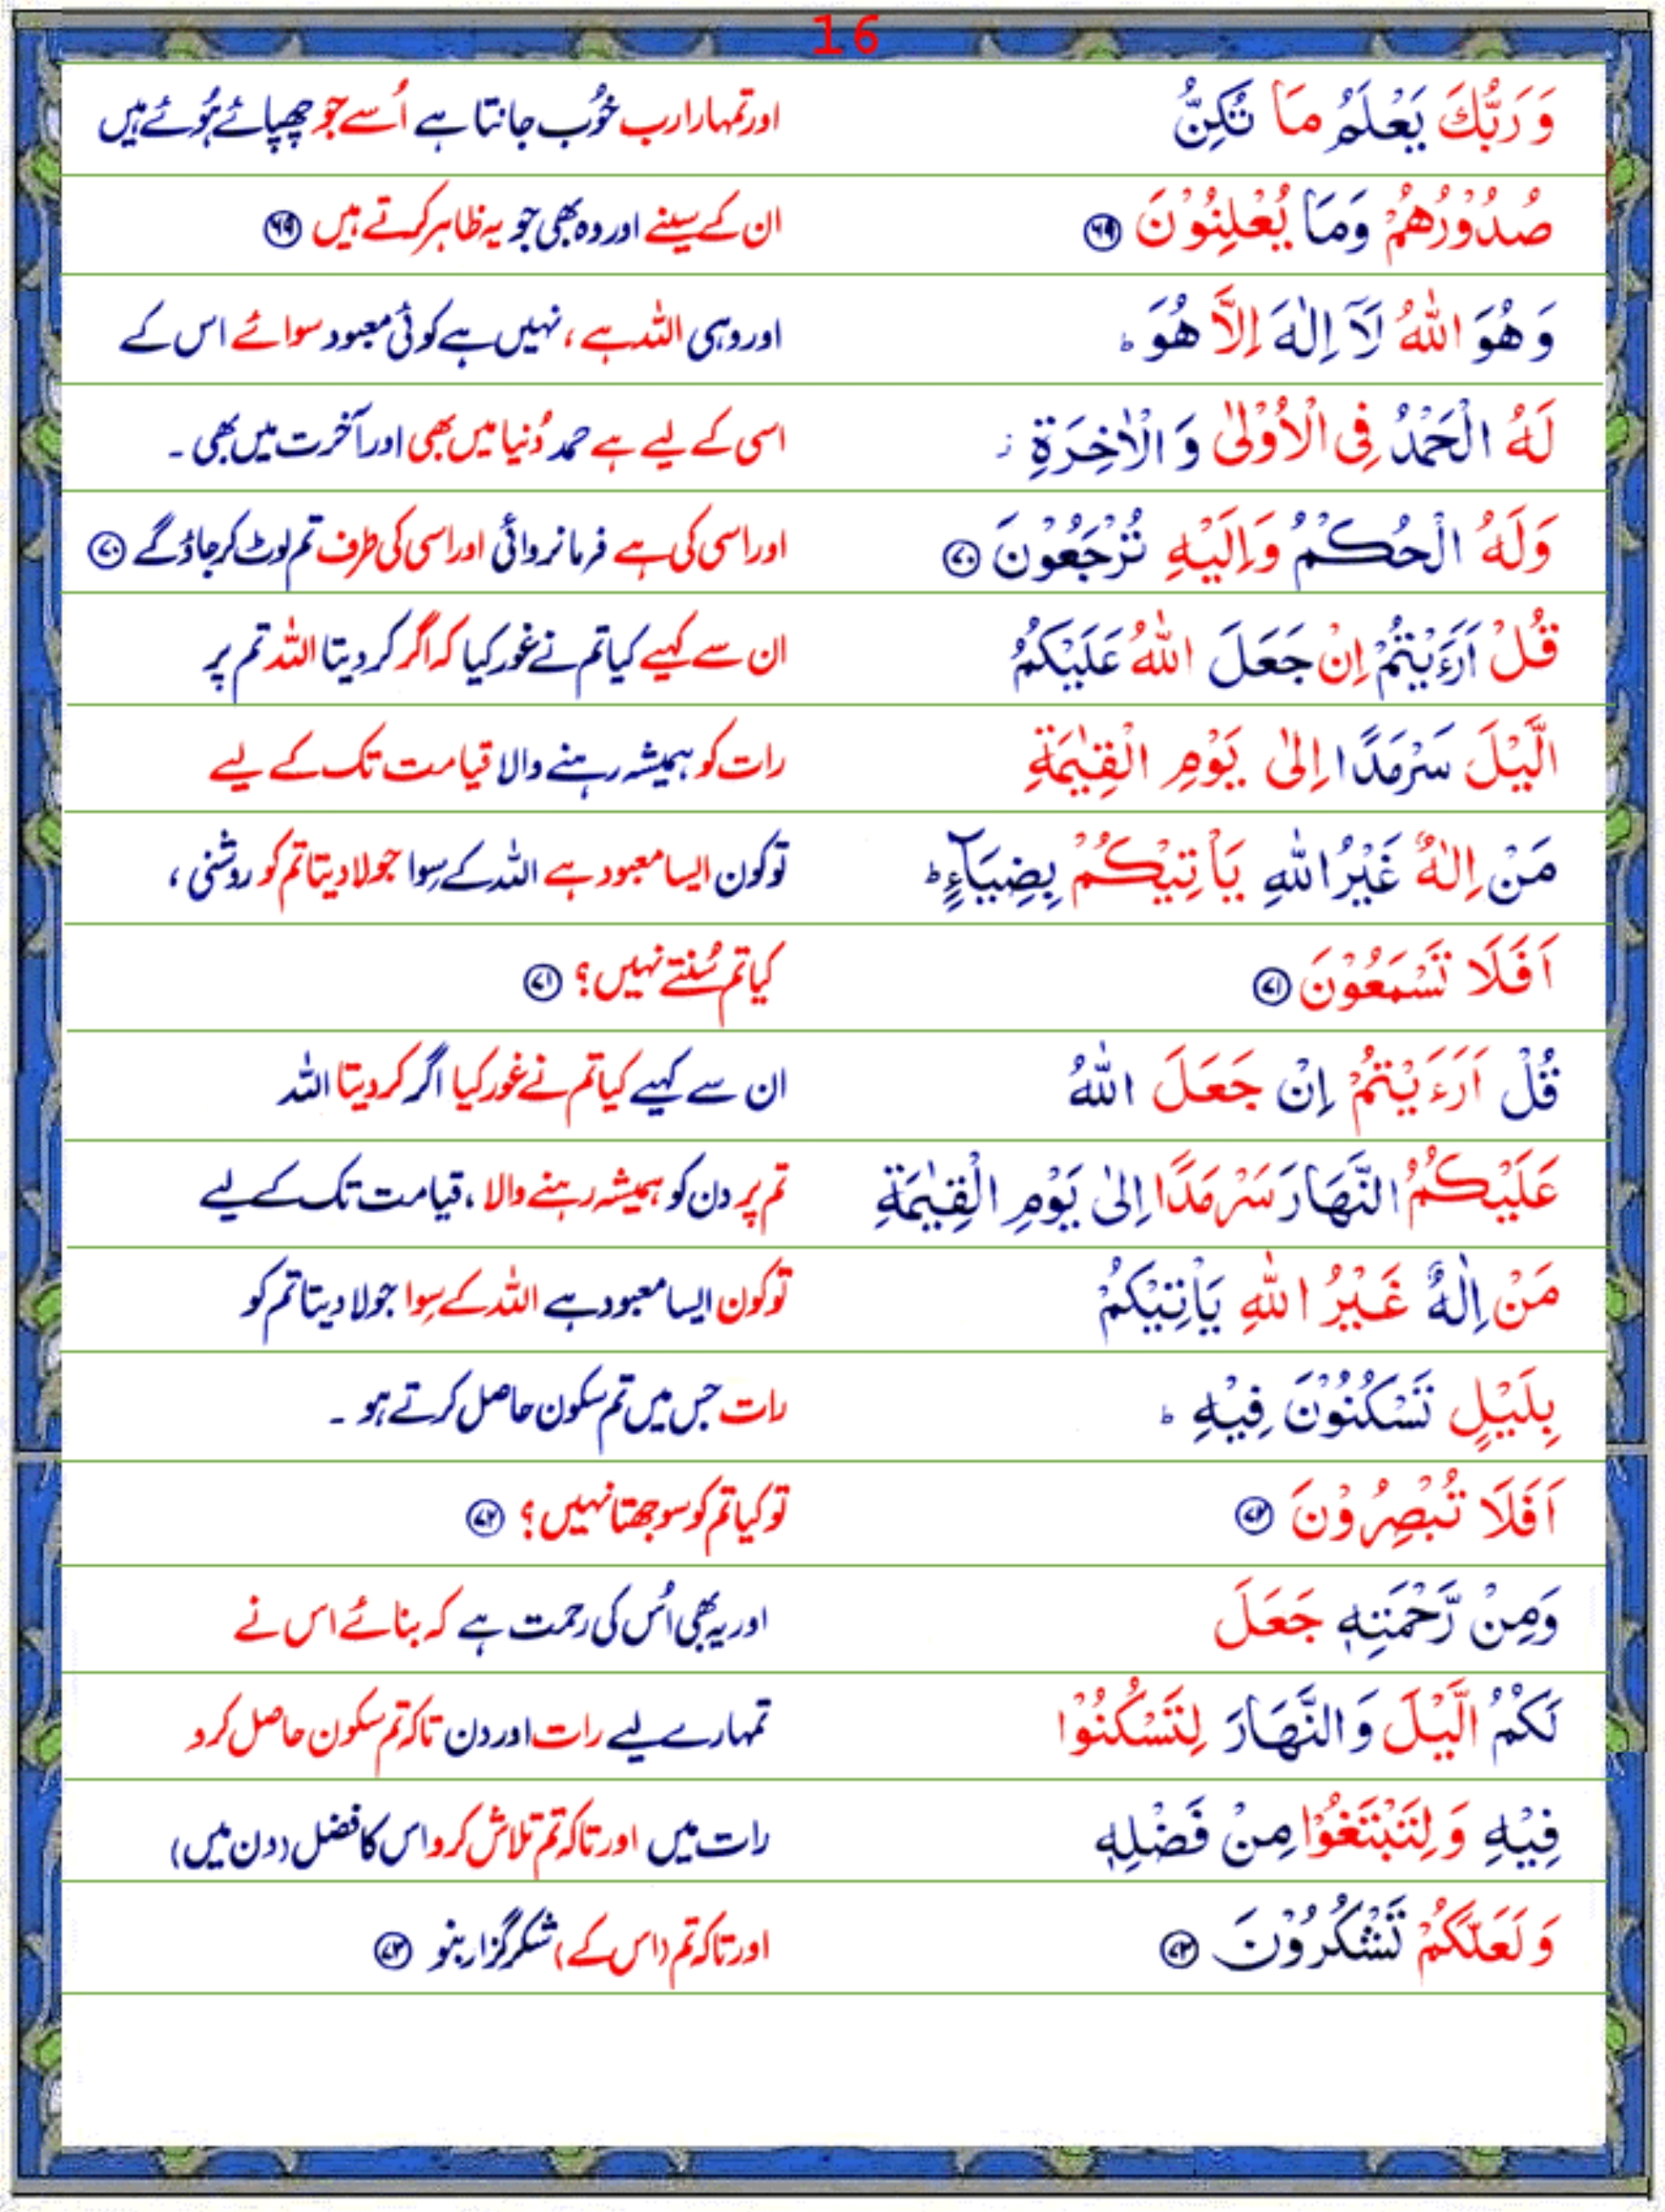 16
وَرَبُّكَ يَعْلَمُ مَا تُكِنُّ اور تمہارا رب خُوب جانتا ہے اُسے جو چھپائے ہُوئے ہیں
صُدُوْرُهُمْ وَمَا يُعْلِنُوْنَ ۶۹ ان کے سینے اور وہ بھی جو یہ ظاہر کرتے ہیں ۶۹
وَهُوَ اللّٰهُ لَآ اِلٰهَ اِلَّا هُوَ ؕ اور وہی اللہ ہے ، نہیں ہے کوئی معبود سوائے اس کے
لَهُ الْحَمْدُ فِى الْاُوْلٰى وَ الْاٰخِرَةِ ز اسی کے لیے ہے حمد دُنیا میں بھی اور آخرت میں بھی ۔
وَلَهُ الْحُكْمُ وَاِلَيْهِ تُرْجَعُوْنَ ۷۰ اور اسی کی ہے فرمانروائی اور اسی کی طرف تم لوٹ کر جاؤ گے ۷۰
قُلْ اَرَءَيْتُمْ اِنْ جَعَلَ اللّٰهُ عَلَيْكُمُ ان سے کہیے کیا تم نے غور کیا کہ اگر کر دیتا اللہ تم پر
الَّيْلَ سَرْمَدًا اِلٰى يَوْمِ الْقِيٰمَةِ رات کو ہمیشہ رہنے والا قیامت تک کے لیے
مَنْ اِلٰهٌ غَيْرُ اللّٰهِ يَاْتِيْكُمْ بِضِيَآءٍ ؕ تو کون ایسا معبود ہے اللہ کے سِوا جو لا دیتا تم کو روشنی ،
اَفَلَا تَسْمَعُوْنَ ۷۱ کیا تم سُنتے نہیں؟ ۷۱
قُلْ اَرَءَيْتُمْ اِنْ جَعَلَ اللّٰهُ ان سے کہیے کیا تم نے غور کیا اگر کر دیتا اللہ
عَلَيْكُمُ النَّهَارَ سَرْمَدًا اِلٰى يَوْمِ الْقِيٰمَةِ تم پر دن کو ہمیشہ رہنے والا ، قیامت تک کے لیے
مَنْ اِلٰهٌ غَيْرُ اللّٰهِ يَاْتِيْكُمْ تو کون ایسا معبود ہے اللہ کے سِوا جو لا دیتا تم کو
بِلَيْلٍ تَسْكُنُوْنَ فِيْهِ ؕ رات جس میں تم سکون حاصل کرتے ہو ۔
اَفَلَا تُبْصِرُوْنَ ۷۲ تو کیا تم کو سوجھتا نہیں؟ ۷۲
وَمِنْ رَّحْمَتِهٖ جَعَلَ اور یہ بھی اُس کی رحمت ہے کہ بنائے اس نے
لَكُمُ الَّيْلَ وَالنَّهَارَ لِتَسْكُنُوْا تمہارے لیے رات اور دن تاکہ تم سکون حاصل کرو
فِيْهِ وَلِتَبْتَغُوْا مِنْ فَضْلِهٖ رات میں اور تاکہ تم تلاش کرو اس کا فضل (دن میں)
وَلَعَلَّكُمْ تَشْكُرُوْنَ ۷۳ اور تاکہ تم (اس کے) شکر گزار بنو ۷۳